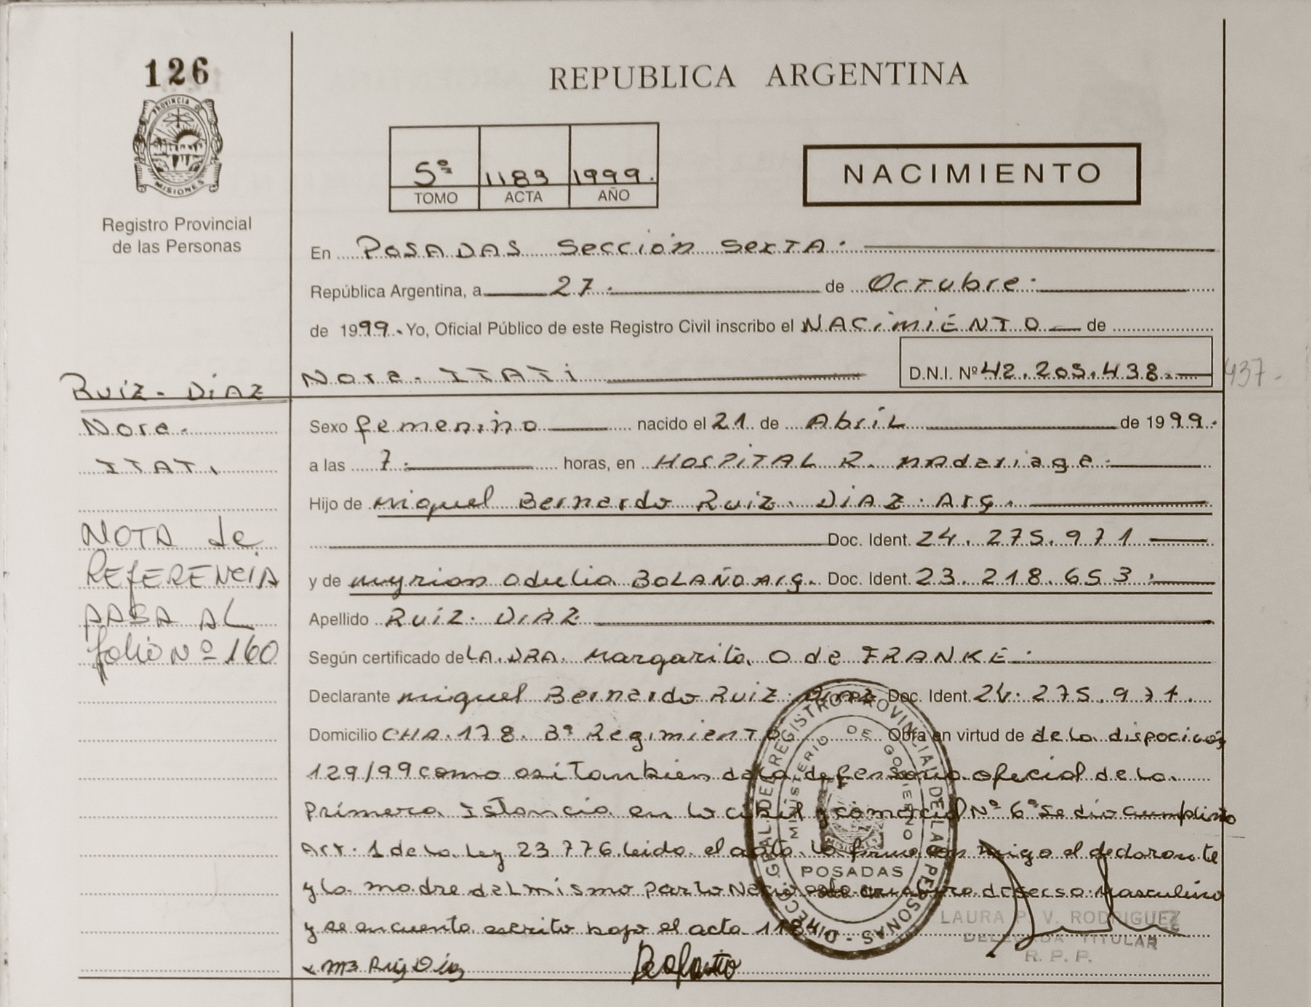 126
REPUBLICA ARGENTINA
PROVINCIA D
MISIONES
Registro Provincial
de las Personas
5ª 1183 1999.
TOMO ACTA AÑO
NACIMIENTO
En POSADAS Sección Sexta.
República Argentina, a 27. de Octubre.
de 1999. Yo, Oficial Público de este Registro Civil inscribo el NACIMIENTO de
Nora ITATI D.N.I. Nº 42.205.438. 437-
Sexo femenino nacido el 21 de Abril de 1999.
a las 7. horas, en HOSPITAL R. Madariaga.
Hijo de Miguel Bernardo Ruiz. DiAZ. Arg.
Doc. Ident. 24.275.971
y de Myrian Odulia BOLAÑO Arg. Doc. Ident. 23.218.653.
Apellido Ruiz. DIAZ
Según certificado de LA DRA. Margarita O de FRANKE.
Declarante Miguel Bernardo Ruiz. Diaz Doc. Ident. 24.275.971.
Domicilio CHA.178. 3º Regimiento Obra en virtud de de la disposicios
129/99 como asi tambien de la defensoria oficial de la
Primera Istancia en lo civil y comercial Nº 6º Se dio cumplimto
Art. 1 de la Ley 23776 leido el acta lo firma con migo el declarante
y la madre del mismo parto Nacio de sexo Masculino
y se encuentra escrito bajo el acta 1184
Ruiz-DiAZ
Nora
ITATI
NOTA de
REFERENCIA
PASA AL
folio Nº 160
DIRECC. GRAL. DEL REGISTRO PROVINCIAL DE LAS PERSONAS
MINISTERIO DE GOBIERNO
POSADAS
LAURA P. V. RODRIGUEZ
DELEGADA TITULAR
R. P. P.
MB Ruiz Diaz